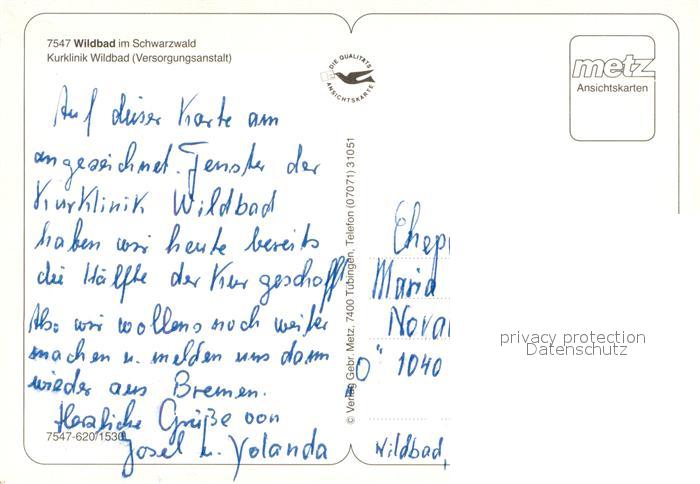 7547 Wildbad im Schwarzwald
Kurklinik Wildbad (Versorgungsanstalt)
DIE QUALITÄTS
ANSICHTSKARTE
metz
Ansichtskarten
Auf dieser Karte am
angezeichnet. Fenster der
Kurklinik Wildbad
haben wir heute bereits
die Hälfte der Kur geschafft
Also wir wollens noch weiter
machen u. melden uns dann
wieder aus Bremen.
Herzliche Grüße von
Josef u. Yolanda
7547-620/1530
© Verlag Gebr. Metz, 7400 Tübingen, Telefon (07071) 31051
Ehep
Maria
Nova
1040
Wildbad,
privacy protection
Datenschutz